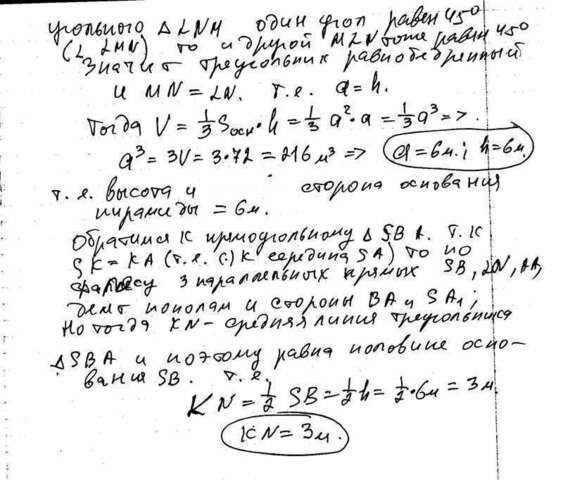 угольного Δ LNM один угол равен 45°
(∠ LMN) то и другой MLN тоже равен 45°
Значит треугольник равнобедренный
и MN = LN. т.е. a = h.
Тогда V = 1/3 Sосн·h = 1/3 a²·a = 1/3 a³ =>.
a³ = 3V = 3·72 = 216 м³ => a = 6м.; h = 6м.
т.е. высота и сторона основания
пирамиды = 6м.
Обратимся к прямоугольному Δ SBA. т.к
SK = KA (т.е. K середина SA) то по
Фалесу 3 параллельных прямых SB,
делят пополам и стороны BA и SA;
Но тогда KN - средняя линия треугольника
Δ SBA и поэтому равна половине осно-
вания SB. т.е.
KN = 1/2 SB = 1/2 h = 1/2·6м = 3м.
KN = 3м.